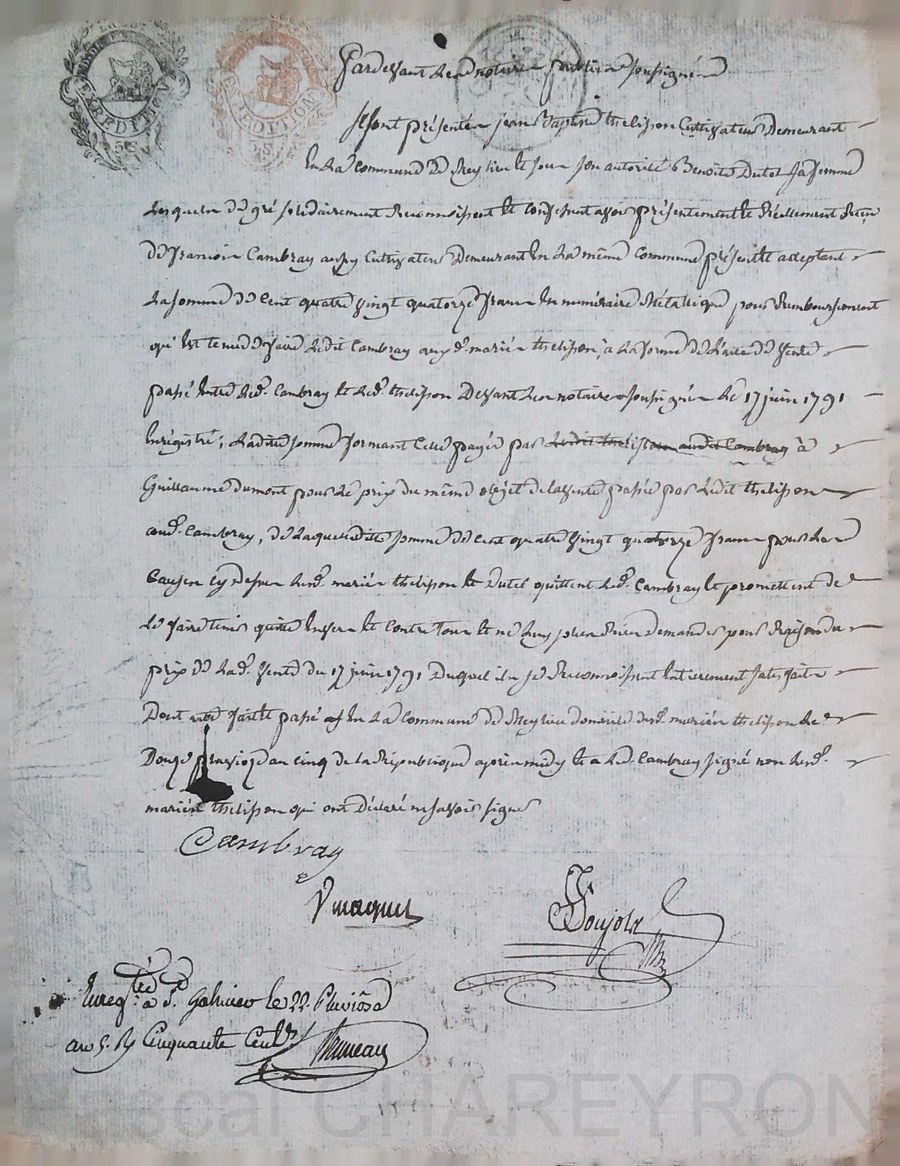 EXPEDITION
EXPEDITION
50 S
Pardevant le notaire public soussigné
se sont présentés jean Baptiste thelisson Cultivateur demeurant
en la commune de Meyrieu et sous son autorité Benoite Dutel sa femme
lesquels de gré solidairement Reconnoissent et confessent avoir présentement et Réellement Reçu
de francois Cambray aussy Cultivateur demeurant en la même commune présent et acceptant
la somme de cent quatre vingt quatorze francs en numéraire Métallique pour Remboursement
qu'est tenu de faire ledit Cambray auxd. mariés thelisson, a la forme de l'acte de vente
passé entre led. Cambray et led. thelisson devant le notaire soussigné le 17 juin 1791
Enrégistré; ladite somme formant celle payée par ledit thelisson audit Cambray à
Guillaume dumont pour le prix du même objet de la vente passée par ledit thelisson
aud. Cambray, de laquelle dite somme de cent quatre vingt quatorze francs pour les
causes cy dessus lesd. mariés thelisson et Dutel quittent led. Cambray et promettent de
le faire tenir quitte envers et contre tous et ne luy plus rien demander pour Raison du
prix de lad. vente du 17 juin 1791 duquel ils se Reconnoissent entierement satisfaits
Dont acte fait et passé en la commune de Meyrieu domicile desd. mariés thelisson le
Douze pluviose an cinq de la République après midy et a led. Cambray signé non lesd.
mariés thelisson qui ont déclaré ne savoir signer
Cambray
Soujol
Enreg. a le 22 Pluviôse
an 5. R Cinquante Cent
Bruneau
Pascal CHAREYRON